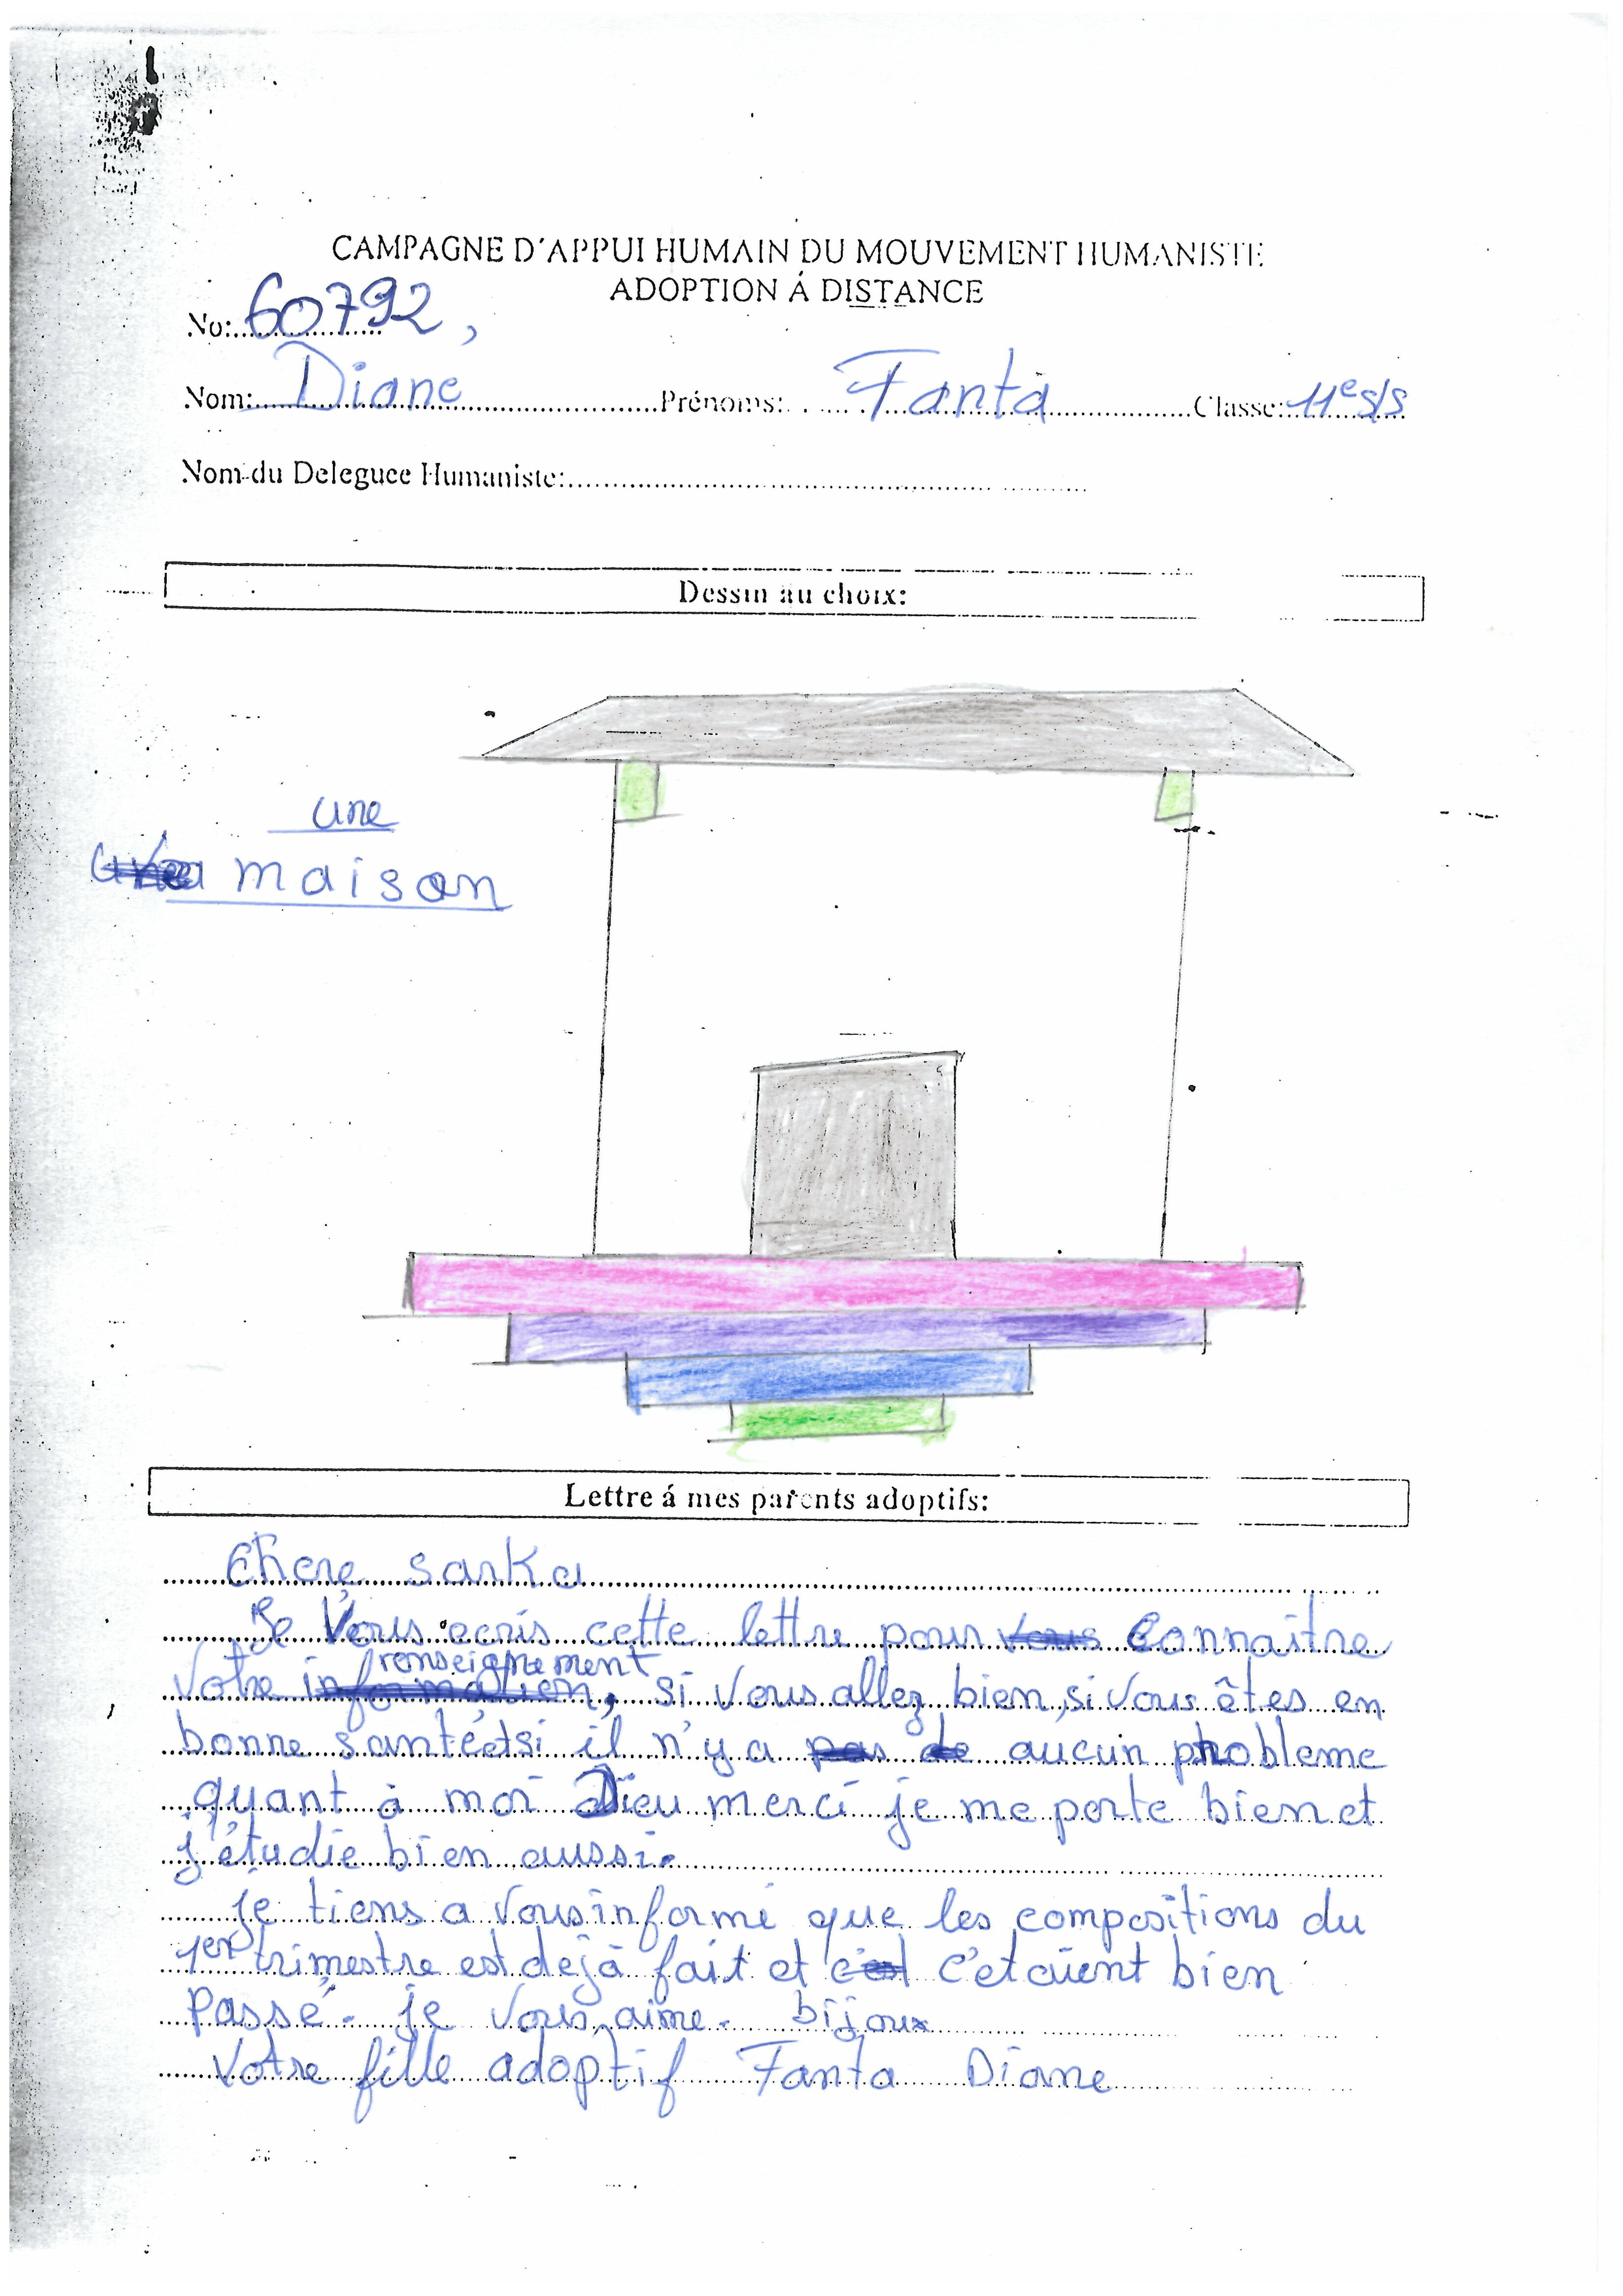 CAMPAGNE D'APPUI HUMAIN DU MOUVEMENT HUMANISTE
ADOPTION Á DISTANCE
No: 60792,
Nom: Diane Prénoms: Fanta Classe: 11e s/s
Nom du Deleguee Humaniste:
Dessin au choix:
une
maison
Lettre á mes parents adoptifs:
Chere sarka
Je Vous ecris cette lettre pour vous Connaitre
renseignement
Votre information, si vous allez bien, si vous êtes en
bonne santé et si il n'y a pas de aucun probleme
quant à moi Dieu merci je me porte bien et
j'étudie bien aussi.
je tiens a vous informé que les compositions du
1er trimestre est dejà fait et c'est c'etaient bien
Passé. je vous aime. bijoux
Votre fille adoptif Fanta Diane